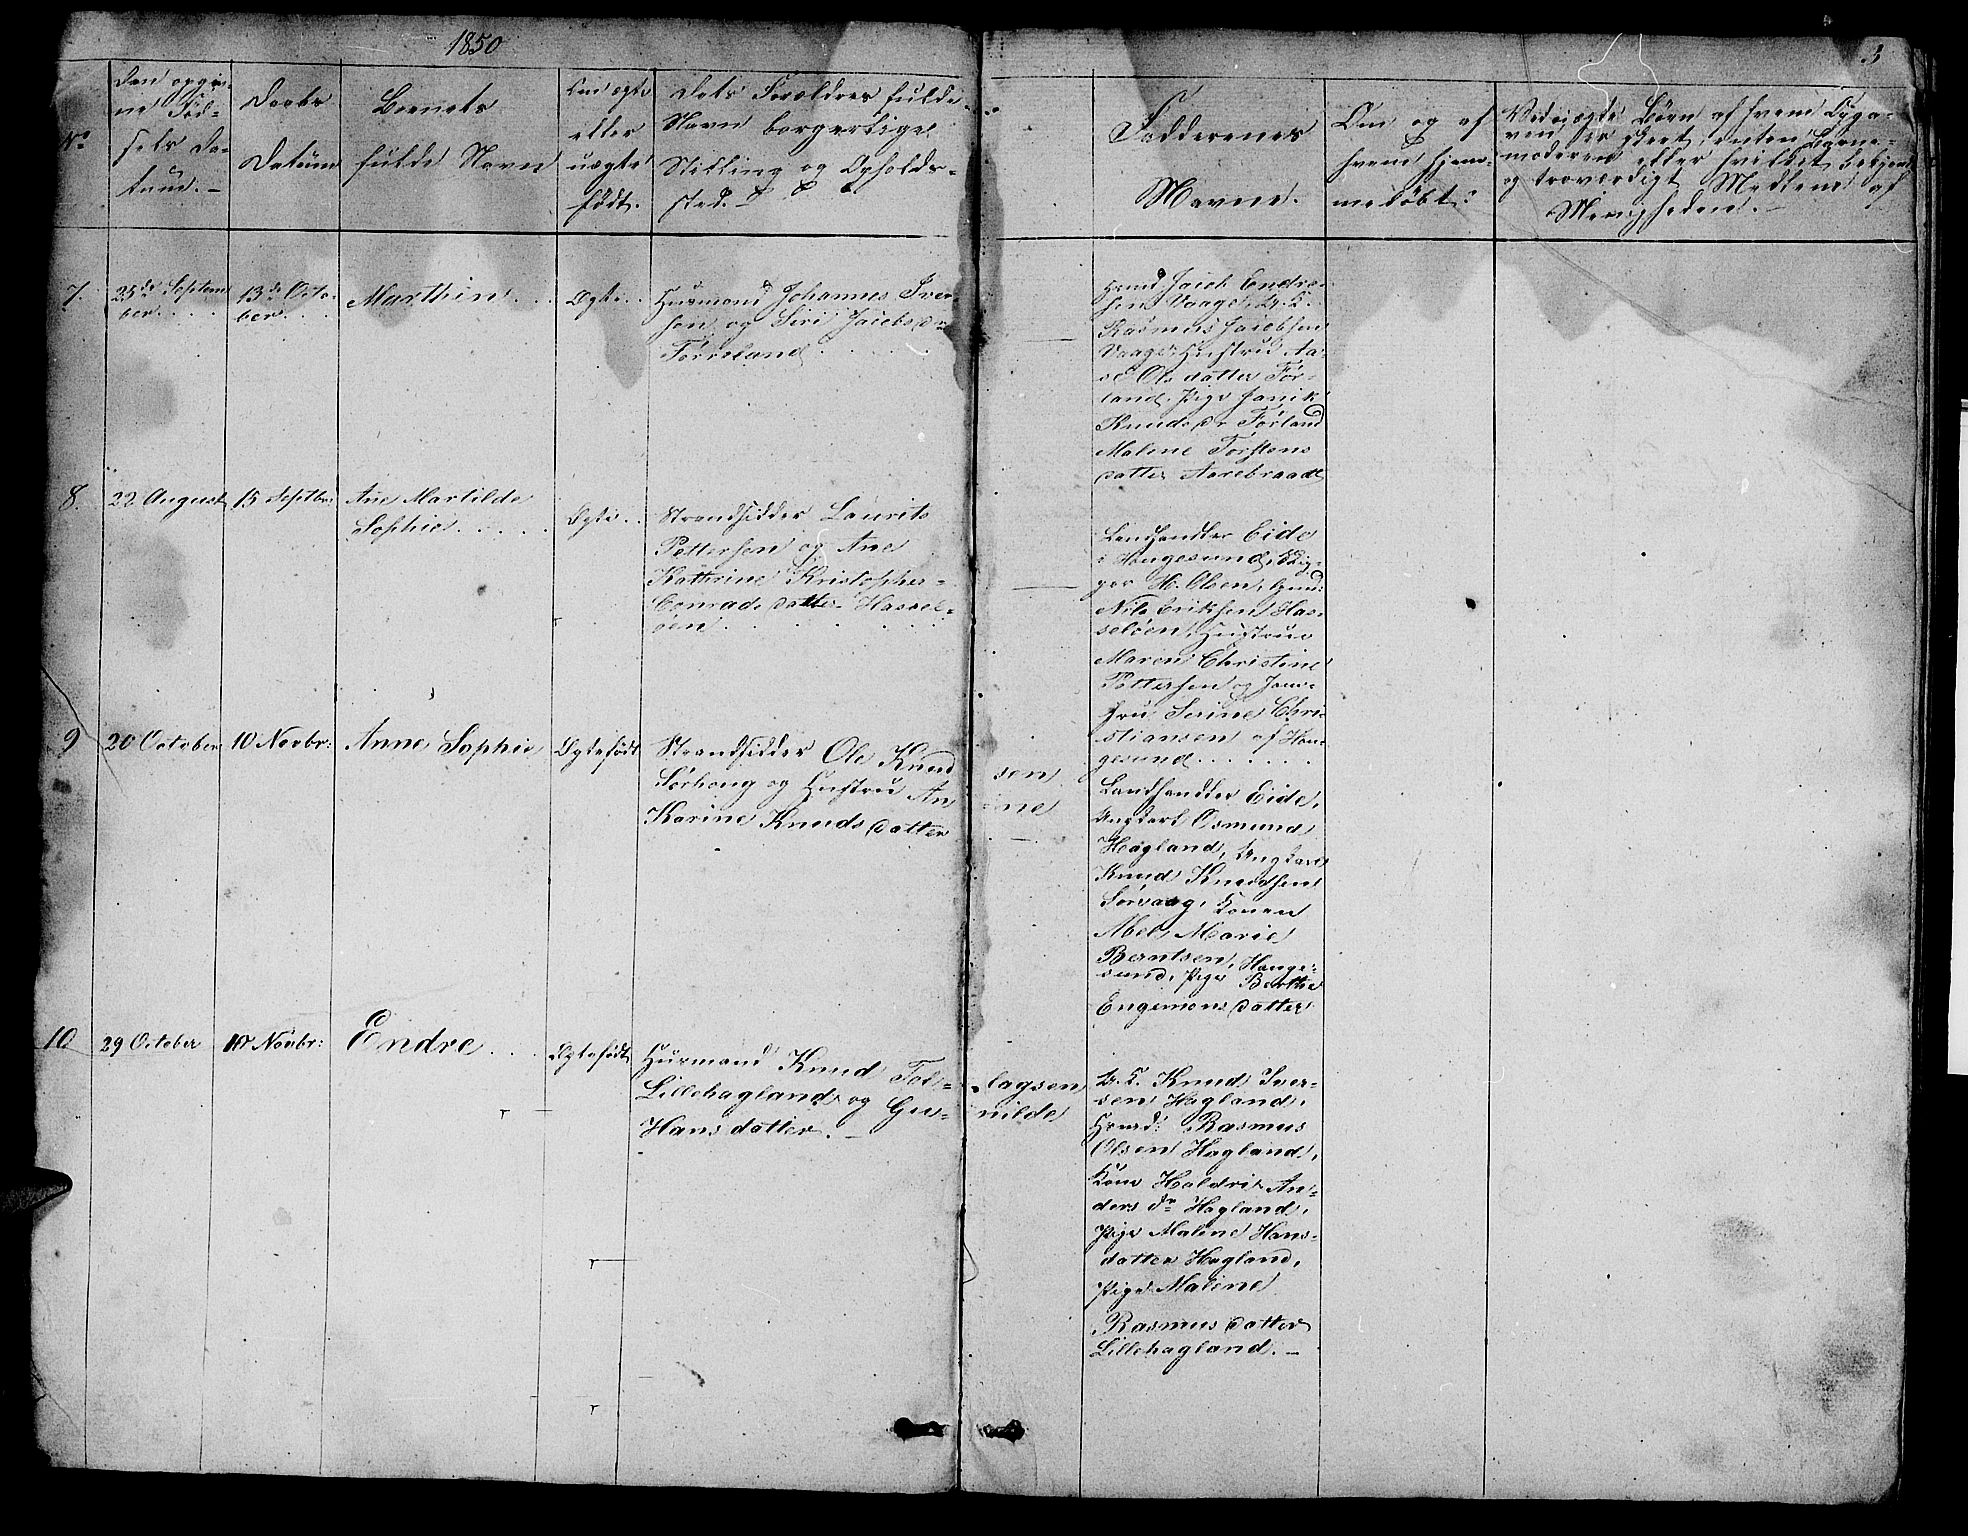 1850
3
No
Den opgiv-
ne Fød-
sels Da-
tum. -
Daabs
Datum
Barnets
fulde Navn
Om ægte
eller
uægte
født.
Dets Forældres fulde
Navn borgerlige
Stilling og Opholds-
sted. -
Fadderenes
Navne.
Om og af
hvem hjem-
medøbt.
Ved uægte Børn af hvem Opga-
ven er skeet, enten Barne-
moderen eller hvilket bekjendt
og troværdigt Medlem af
Menigheden. -
7.
25de Septem
ber....
13de Octo-
ber....
Marthin...
Ægte..
Huusmand Johannes Iver-
sen og Siri Jacobsdr
Førreland.....
Jacob Endre-
sen Vaage, U. K.
Rasmus Jacobsen
Vaage, Hustrue Aa-
sE Olsdatter Før-
land, Pige Janik
Knudsdr Førland
Malene Torstens
datter Aarebraadt
8.
22 August
15 Septbr:
Ane Martilde
Sophie....
Ægte..
Strandsidder Laurits
Pettersen og Ane
Kathrine Kristopher-
Conrads datter Hassel-
øen.......
Landhandler Eide
i Hougesund,
H. Olsen,
Nils Eriksen Has-
seløen, Hustrue
Maren Christine
Pettersen og Jom-
fru Serine Chri-
stiansen af Hou-
gesund......
9
20 October
10 Novbr:
Anne Sophie
Ægtefødt
Strandsidder Ole Knud
sen
Sørhoug og Hustrue An
ne
Karine Knuds datter
Landhandler Eide,
Ungkarl Osmund
Hagland, Ungkarl
Knud Knudsen
Sørvaag, Konen
Abel Marie
Berntsen, Houge-
sund, Pige Berthe
Engemons datter
10
29 October
10 Novbr:
Endre...
Ægtefødt
Huusmand Knud Tol-
lagsen
Lillehagland og Gu-
nilde
Hans datter. -
U. K. Knud Iver-
sen Hagland,
Rasmus
Olsen Hagland,
Kone Haldri An-
ders dr Hagland,
Pige Malene Hans-
datter Hagland,
Pige Malene
Rasmus datter
Lillehagland. -